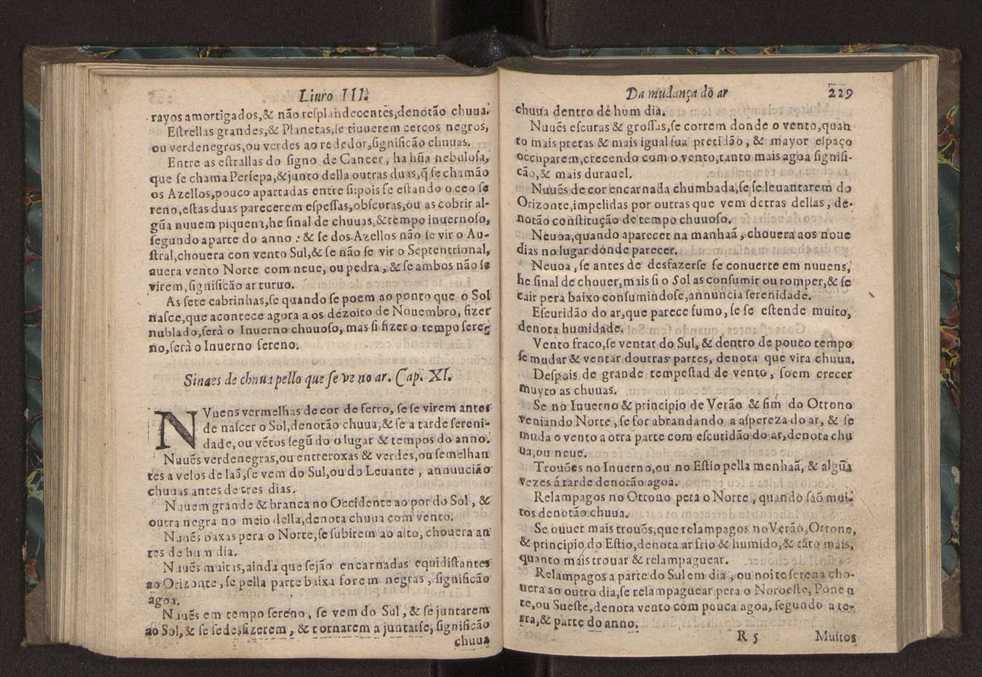 Liuro III.
rayos amortigados,& não resplandecentes,denotão chuua.
Estrellas grandes,& Planetas,se tiuerem cercos negros,
ou verdenegros,ou verdes ao rededor,significão chuuas.
Entre as estrallas do signo de Cancer, ha hũa nebulosa,
que se chama Persepa,& junto della outras duas,q̃ se chamão
os Azellos,pouco apartadas entre si:pois se estando o ceo se
reno,estas duas parecerem espessas,obscuras,ou as cobrir al-
gũa nuuem piquena,he sinal de chuuas,& tempo inuernoso,
segundo aparte do anno : & se dos Azellos não se vir o Au-
stral,chouera con vento Sul,& se não se vir o Septentrional,
auera vento Norte com neue, ou pedra , & se ambos não se
virem,significão ar turuo.
As sete cabrinhas,se quando se poem ao ponto que o Sol
nasce,que acontece agora a os dezoito de Nouembro, fizer
nublado,serà o Inuerno chuuoso, mas si fizer o tempo sere-
no,serà o Inuerno sereno.
Sinaes de chuua pello que se vz no ar. Cap. XI.
NVuens vermelhas de cor de ferro, se se virem antes
de nascer o Sol,denotão chuua,& se a tarde sereni-
dade,ou vẽtos segũdo o lugar & tempos do anno.
Nuuẽs verdenegras,ou entreroxas & verdes,ou semelhan
tes a velos de laã,se vem do Sul,ou do Leuante , annunciãɔ
chuuas antes de tres dias.
Nuuem grande & branca no Occidente ao por do Sol , &
outra negra no meio della,denota chuua com vento.
Nuuẽs baxas pera o Norte,se subirem ao alto, chouera an
tes de hum dia.
Nuuẽs muitas,ainda que sejão encarnadas equidistantes
ao Orizonte , se pella parte baixa forem negras , significão
agoa.
Nuuẽs em tempo sereno, se vem do Sul , & se juntarem
ao Sol,& se se desfizerem , & tornarem a juntarse, significão
chuua
Da mudança do ar 229
chuua dentro de hum dia.
Nuuẽs escuras & grossas,se correm donde o vento,quan
to mais pretas & mais igual sua pretidão , & mayor espaço
occuparem,crecendo com o vento,tanto mais agoa signifi-
cão,& mais durauel.
Nuuẽs de cor encarnada chumbada,se se leuantarem do
Orizonte,impelidas por outras que vem detras dellas , de-
notão constituição de tempo chuuoso.
Neuoa,quando aparecer na manhaã , chouera aos noue
dias no lugar donde parecer.
Neuoa , se antes de desfazerse se conuerte em nuuens,
he sinal de chouer,mais si o Sol as consumir ou romper,& se
cair pera baixo consumindose,annuncia serenidade.
Escuridão do ar,que parece fumo, se se estende muito,
denota humidade.
Vento fraco,se ventar do Sul, & dentro de pouco tempo
se mudar & ventar doutras partes, denota que vira chuua.
Despois de grande tempestad de vento , soem crecer
muyto as chuuas.
Se no Inuerno & principio de Verão & fim do Ottono
veniando Norte , se for abrandando a aspereza do ar, & se
muda o vento a otra parte com escuridão do ar,denota chu
ua,ou neue.
Trouões no Inuerno,ou no Estio pella menhaã, & algũa
vezes á tarde denotão agoa.
Relampagos no Ottono pera o Norte , quando saõ mui-
tos denotão chuua.
Se ouuer mais trouõs,que relampagos no Verão,Ottono,
& principio do Estio,denota ar frio & humido,& tãto mais,
quanto mais trouar & relampaguear.
Relampagos a parte do Sul em dia , ou noite serena cho-
uera ao outro dia,se relampaguear pera o Noroeste, Ponen
te,ou Sueste,denota vento com pouca agoa, segundo a ter-
rra,& parte do anno.
R 5 Muitos